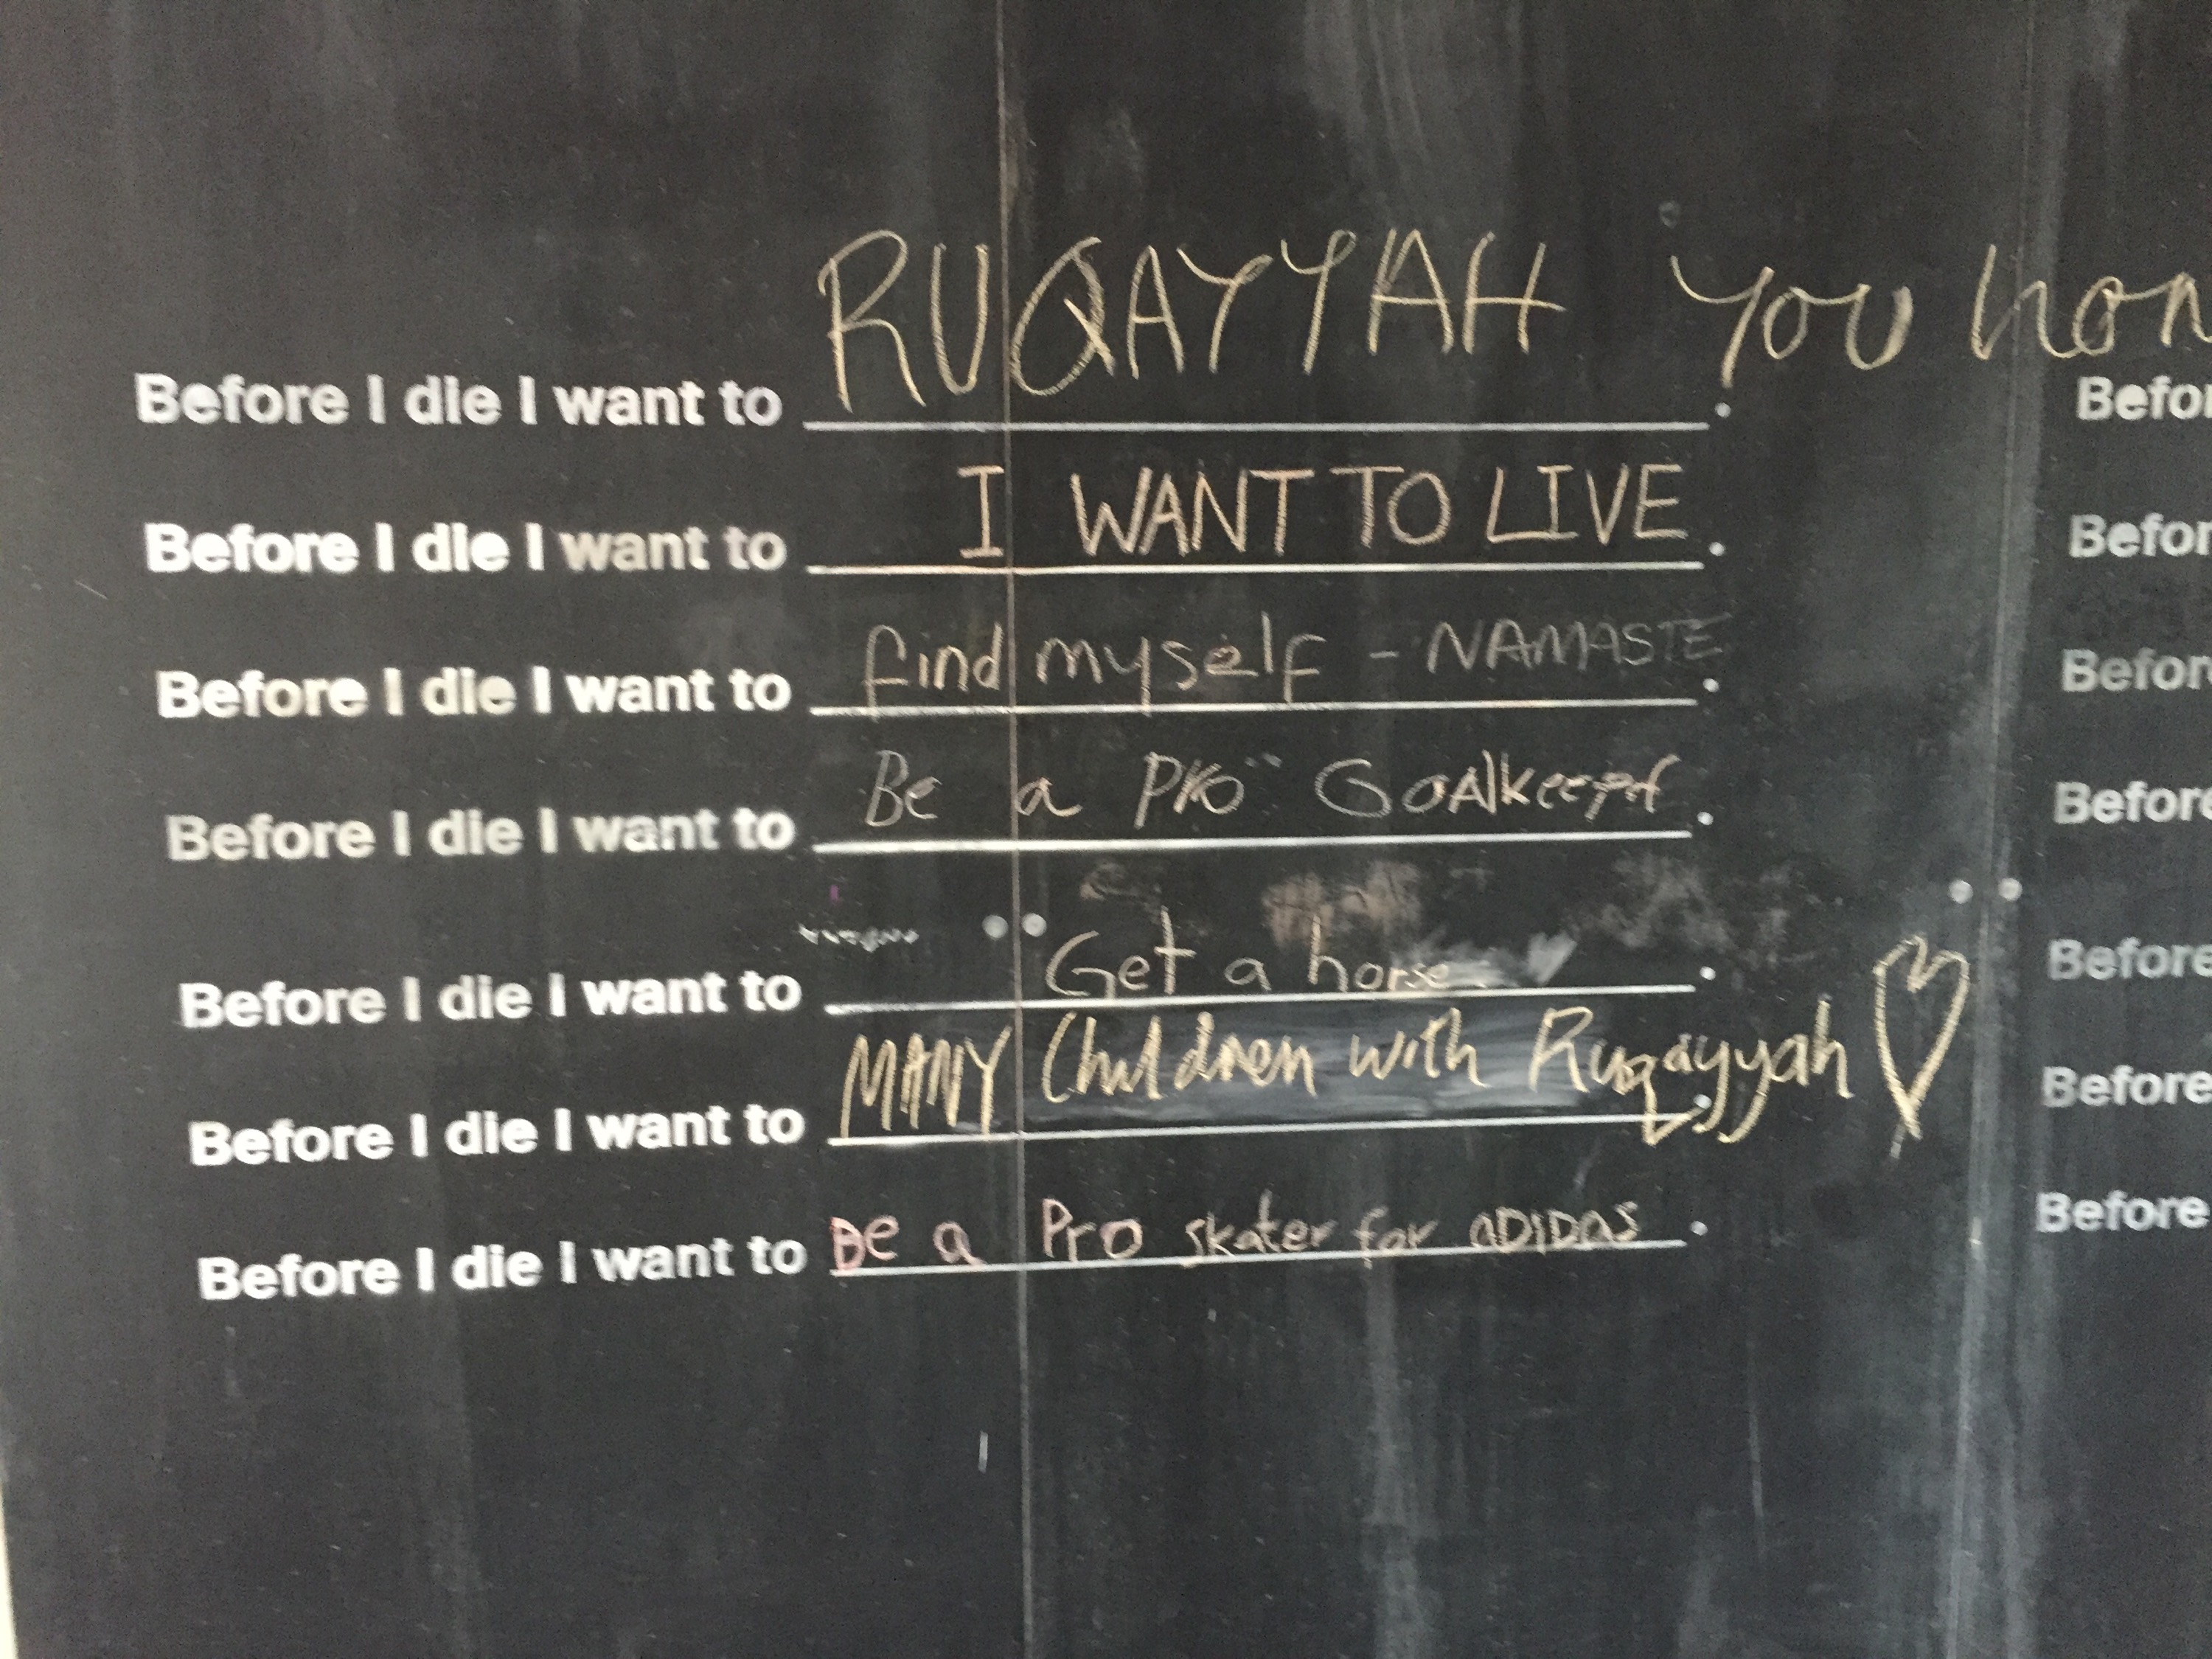 RUQAYYAH you
Before I die I want to .
Before I die I want to I WANT TO LIVE .
Before I die I want to find myself - NAMASTE .
Before I die I want to Be a Pro GOAlkeeper .
Before I die I want to Get a horse .
Before I die I want to MANY Children with Ruqayyah ♡
Before I die I want to Be a Pro skater for aDIDAS .
Before
Before
Before
Before
Before